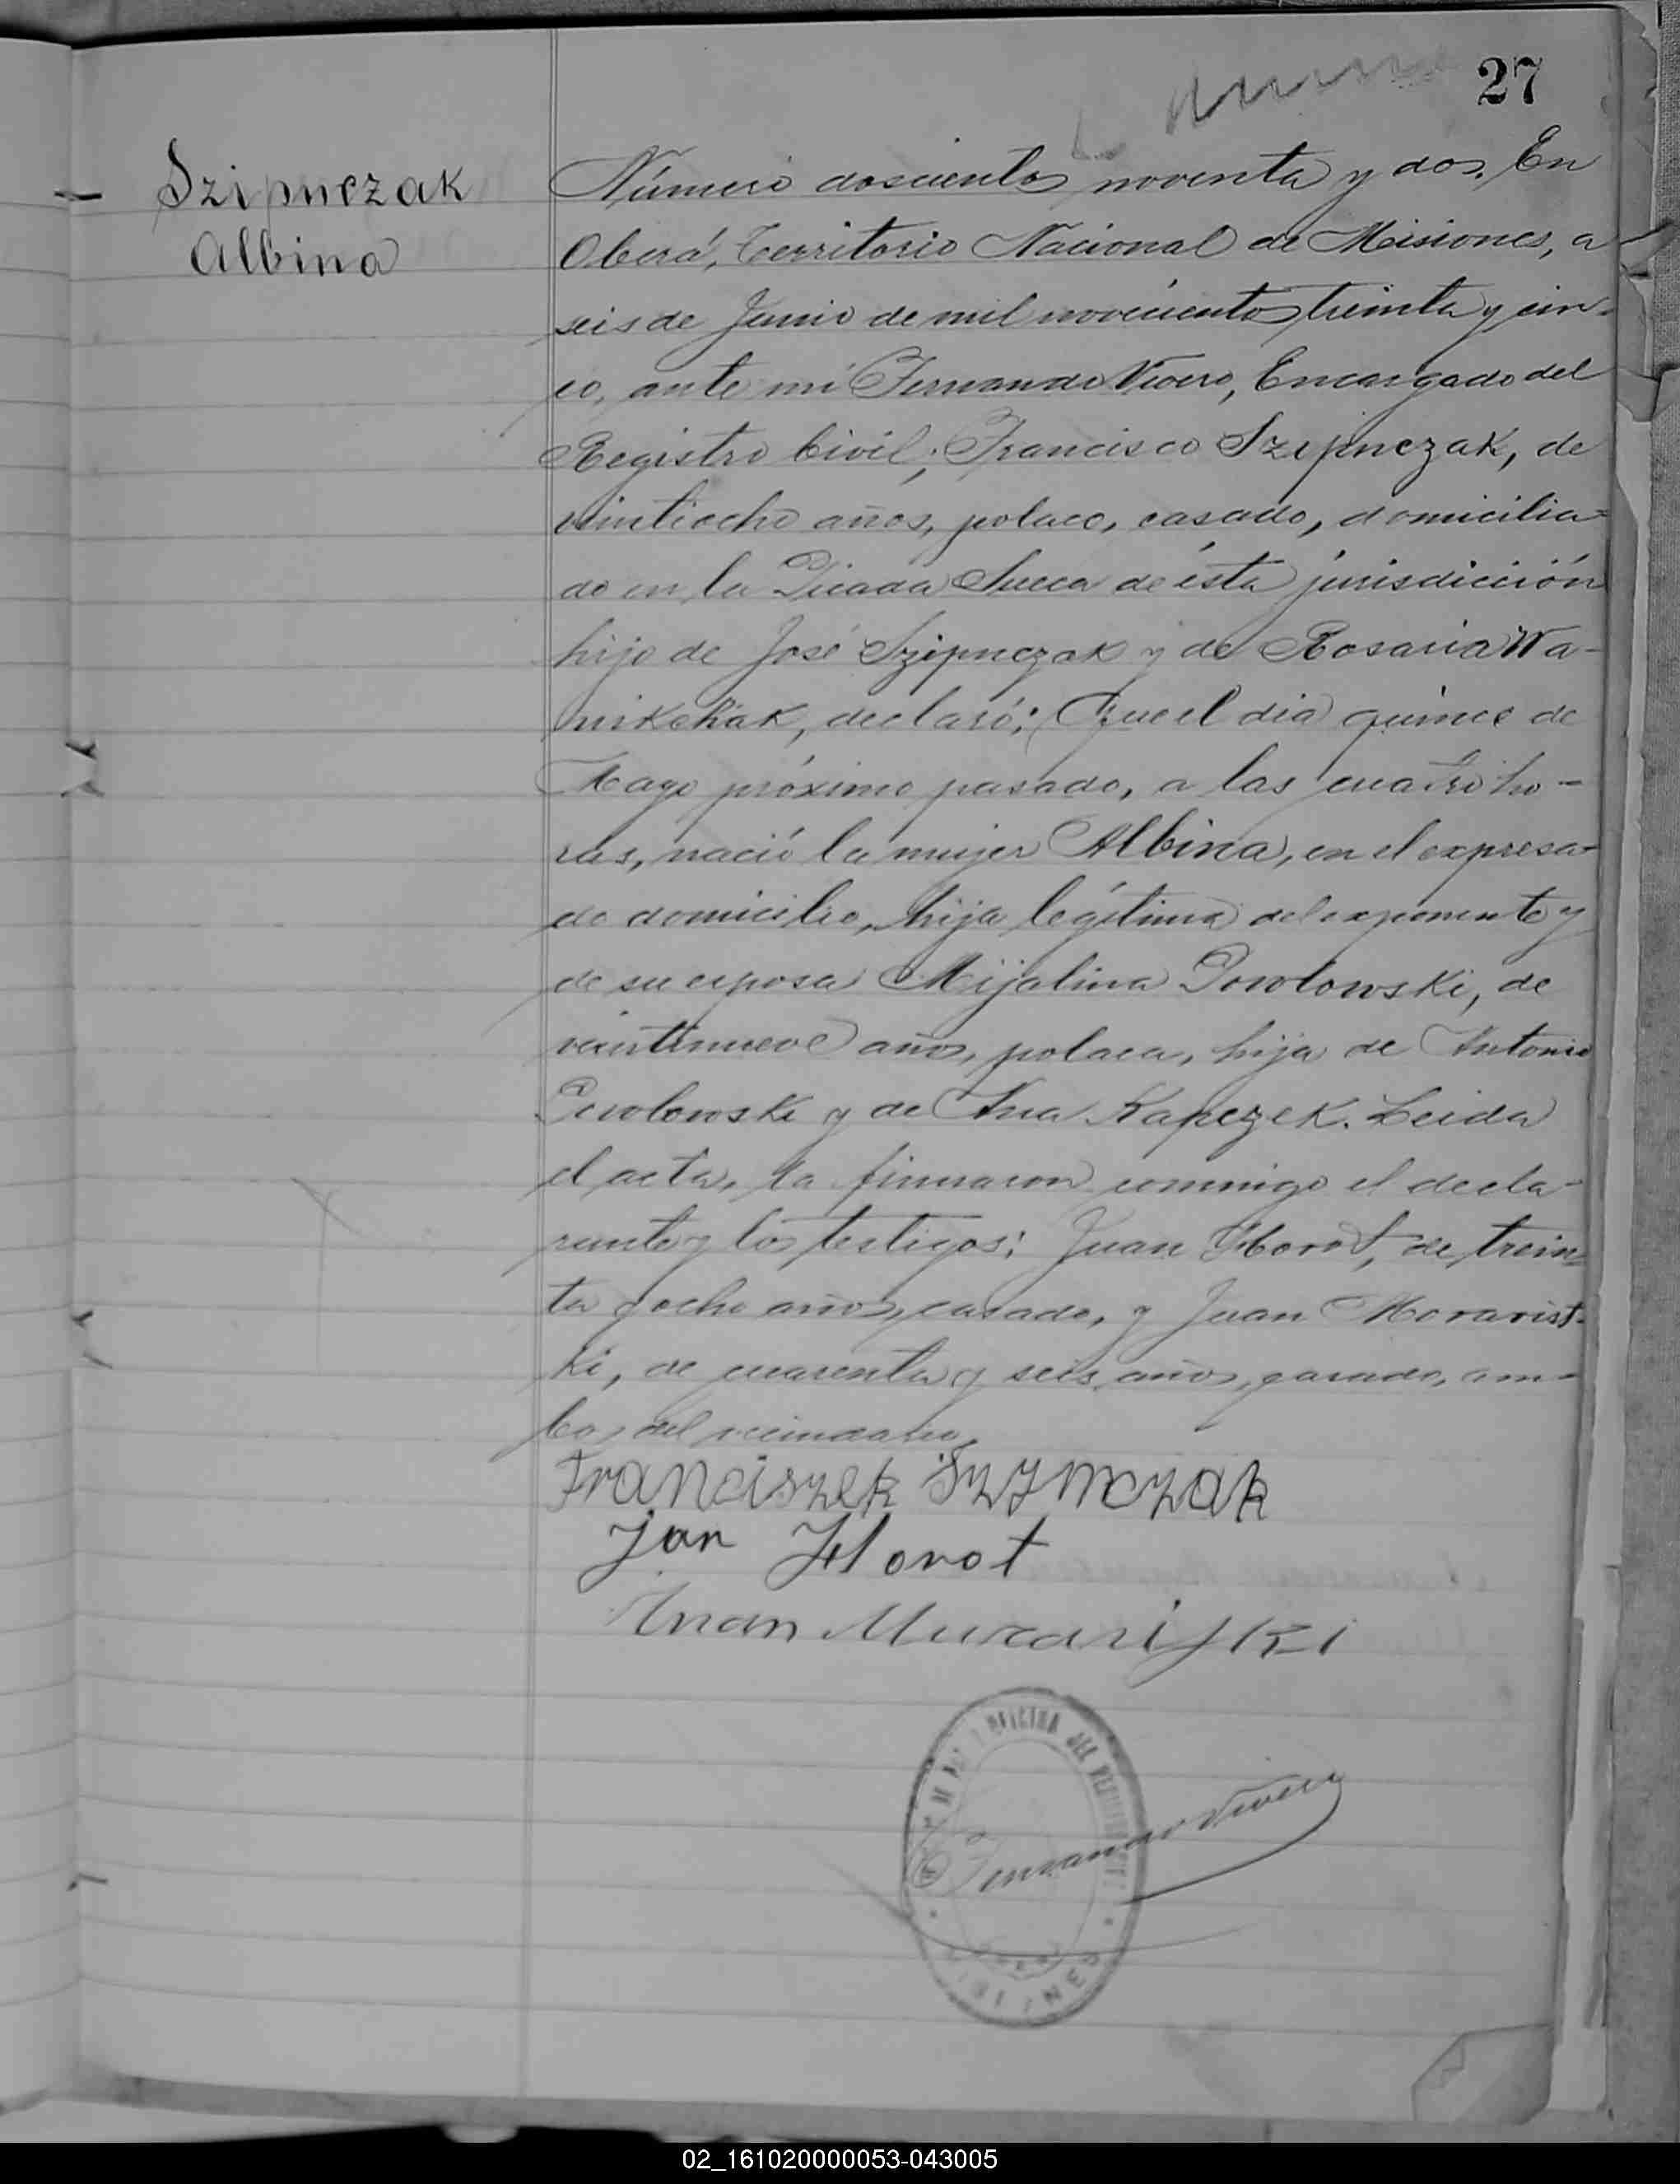 27
Szipnczak
Albina
Número doscientos noventa y dos. En
Oberá, Territorio Nacional de Misiones, a
seis de Junio de mil novecientos treinta y cin-
co, ante mi Fernando Vivero, Encargado del
Registro Civil; Francisco Szipnczak, de
veintiocho años, polaco, casado, domicilia-
do en la Picada Sueca de ésta jurisdicción
hijo de José Szipnczak y de Rosaria Wa-
nikchak, declaró: Que el dia quince de
Mayo próximo pasado, a las cuatro ho-
ras, nació la mujer Albina, en el expresa-
do domicilio, hija legítima del exponente y
de su esposa Mijalina Powlowski, de
veintinueve años, polaca, hija de Antonio
Powlowski y de Ana Kapczek. Leida
el acta, la firmaron conmigo el decla-
rante y los testigos: Juan Horot, de trein-
ta y ocho años, casado, y Juan Moravist-
ki, de cuarenta y seis años, casado, am-
bos del vecindario.
Franciszek Szymczak
Jan Horot
Juan
OFICINA DEL
Fernando Vivero
02_161020000053-043005